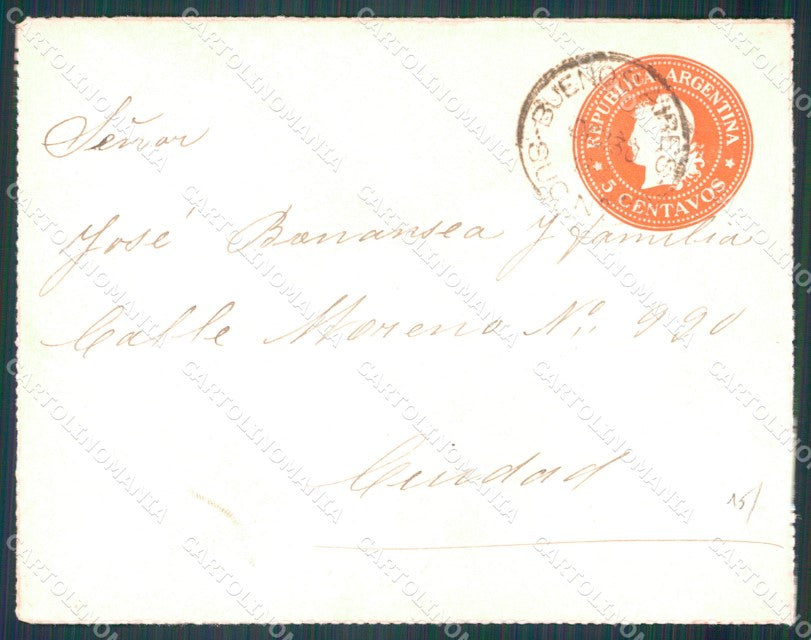 REPUBLICA ARGENTINA
5 CENTAVOS
BUENOS AIRES
Señor
José Bonansea y familia
Calle Moreno No. 990
Ciudad
15
CARTOLINOMANIA